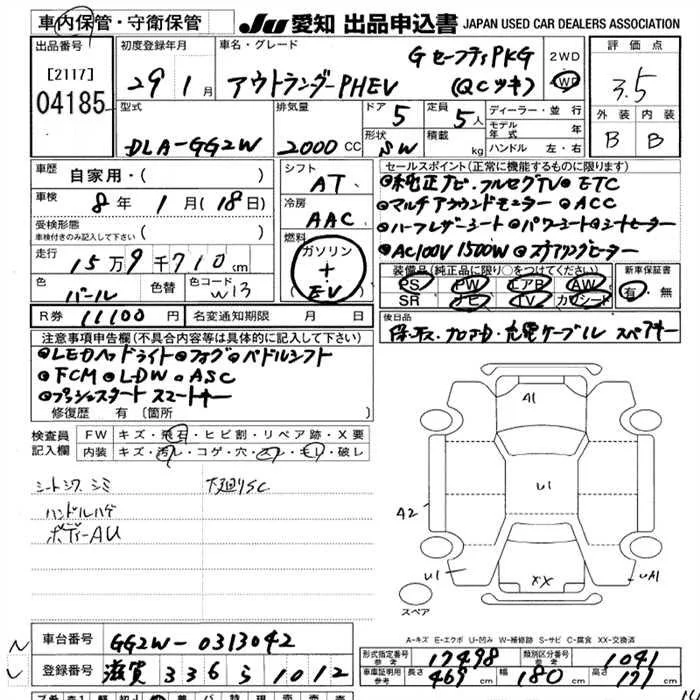 車内保管・守衛保管 JU 愛知 出品申込書 JAPAN USED CAR DEALERS ASSOCIATION
出品番号 [2117] 04185
初度登録年月 29年 1月
車名・グレード アウトランダーPHEV G セーフティPKG (QCツキ)
2WD 4WD
評価点 3.5
外装 内装
B B
型式 DLA-GG2W
排気量 2000 CC
ドア 5 定員 5人
形状 SW 積載 kg
ディーラー・並行
モデル年式 年
ハンドル 左・右
車歴 自家用・( )
車検 8年 1月(18日)
受検形態 車検付きのみ記入して下さい ( )
走行 15万9千710km
色 パール 色替 色コード W13
シフト AT
冷房 AAC
燃料 ガソリン + (EV)
セールスポイント(正常に機能するものに限ります)
◎純正ナビ・フルセグTV◎ETC
◎マルチアラウンドモニター◎ACC
◎ハーフレザーシート◎パワーシート◎シートヒーター
◎AC100V 1500W◎ステアリングヒーター
装備品(純正品に限り○をつけてください) 新車保証書
PS PW エアB AW 有・無
SR ナビ TV カワシート
R券 11100円 名変通知期限 月 日
後日品
保、取、フロアM・充電ケーブル スペアキー
注意事項申告欄(不具合内容等は具体的に記入して下さい)
◎LEDヘッドライト◎フォグ◎パドルシフト
◎FCM◎LDW◎ASC
◎プッシュスタート スマートキー
修復歴 有 [箇所 ]
検査員記入欄 FW キズ・飛石・ヒビ割・リペア跡・X要
内装 キズ・汚レ・コゲ・穴・スレ・モレ・破レ
シートシワ シミ 下廻りSC
ハンドルハゲ
ボディーAU
A1
U1
A2
U1
XX
UA1
スペア
A-キズ E-エクボ U-凹み W-補修跡 S-サビ C-腐食 XX-交換済
車台番号 GG2W-0313042
登録番号 滋賀 336 ら 1012
形式指定番号 参考 17498 類別区分番号 参考 1041
車庫証明用 参考 長さ 469cm 幅 180cm 高さ 171